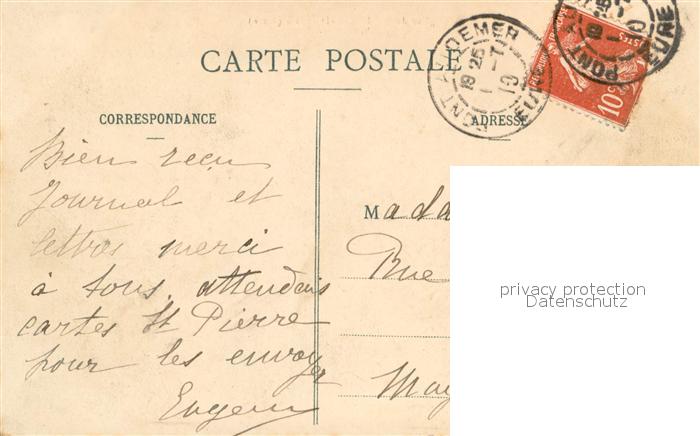 CARTE POSTALE
CORRESPONDANCE
ADRESSE
PONT AUDEMER
18 25
1 -7
10
EURE
10c
PONT
EURE
Bien reçu
Journal et
lettres merci
à tous, attendais
cartes St Pierre
pour les envoyer
Eugene
Mada
Rue
May
privacy protection
Datenschutz